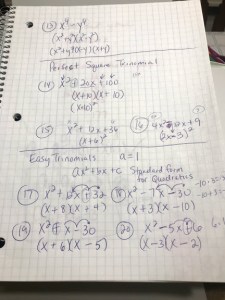 ⑬ x⁴ - y⁴
(x²+y²)(x²-y²)
(x²+y²)(x-y)(x+y)
Perfect Square Trinomial
⑭ x² + 20x + 100
(x+10)(x+10)
(x+10)²
⑮ x² + 12x + 36
(x+6)²
⑯ 4x² - 12x + 9
(2x-3)²
Easy Trinomials a=1
ax² + bx + c Standard form
for Quadratics
⑰ x² + 12x + 32
(x+8)(x+4)
⑱ x² - 7x - 30
(x+3)(x-10)
⑲ x² + x - 30
(x+6)(x-5)
⑳ x² - 5x + 6
(x-3)(x-2)